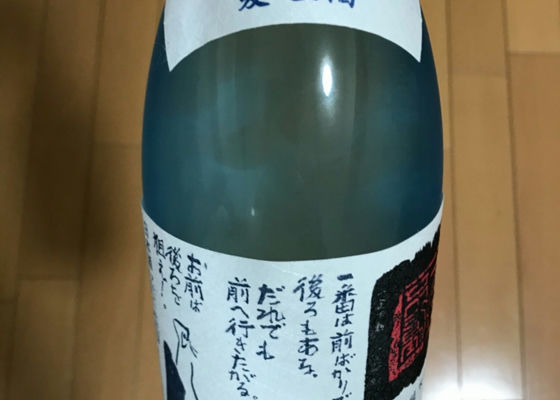 一番は前ばかりで
後ろもある。
だれでも
前へ行きたがる。
お前は
後ろを
狙え!